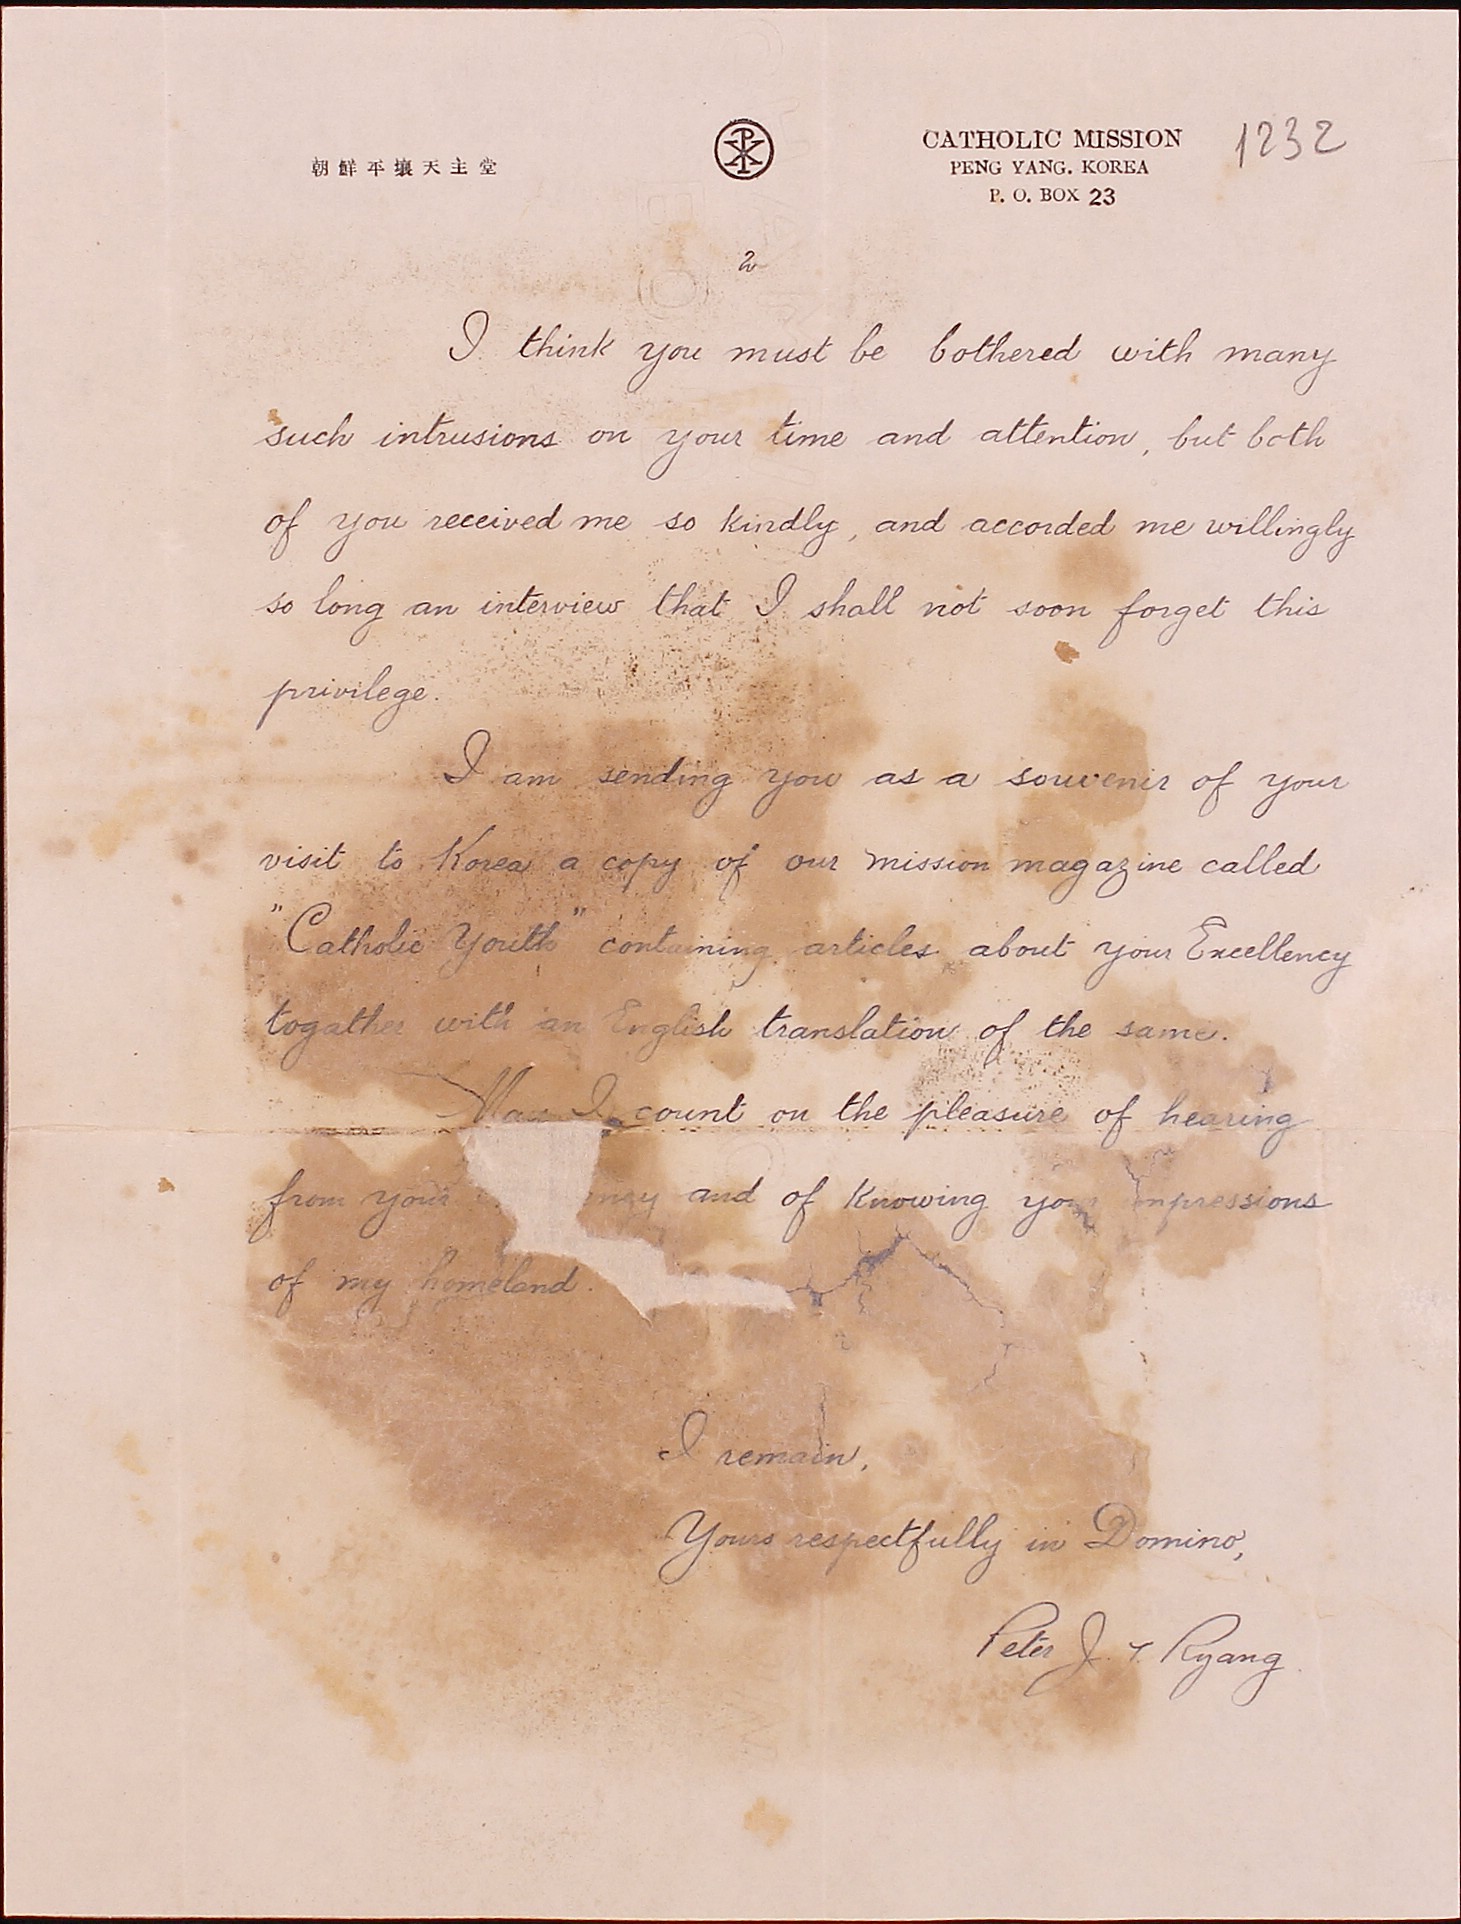 朝鮮平壤天主堂
CATHOLIC MISSION
PENG YANG. KOREA
P. O. BOX 23
1232
2
I think you must be bothered with many
such intrusions on your time and attention, but both
of you received me so kindly, and accorded me willingly
so long an interview that I shall not soon forget this
privilege.
I am sending you as a souvenir of your
visit to Korea a copy of our mission magazine called
"Catholic Youth" containing articles about your Excellency
togather with an English translation of the same.
May I count on the pleasure of hearing
from your and of knowing your impressions
of my homeland.
I remain,
Yours respectfully in Domino,
Peter J. T. Ryang